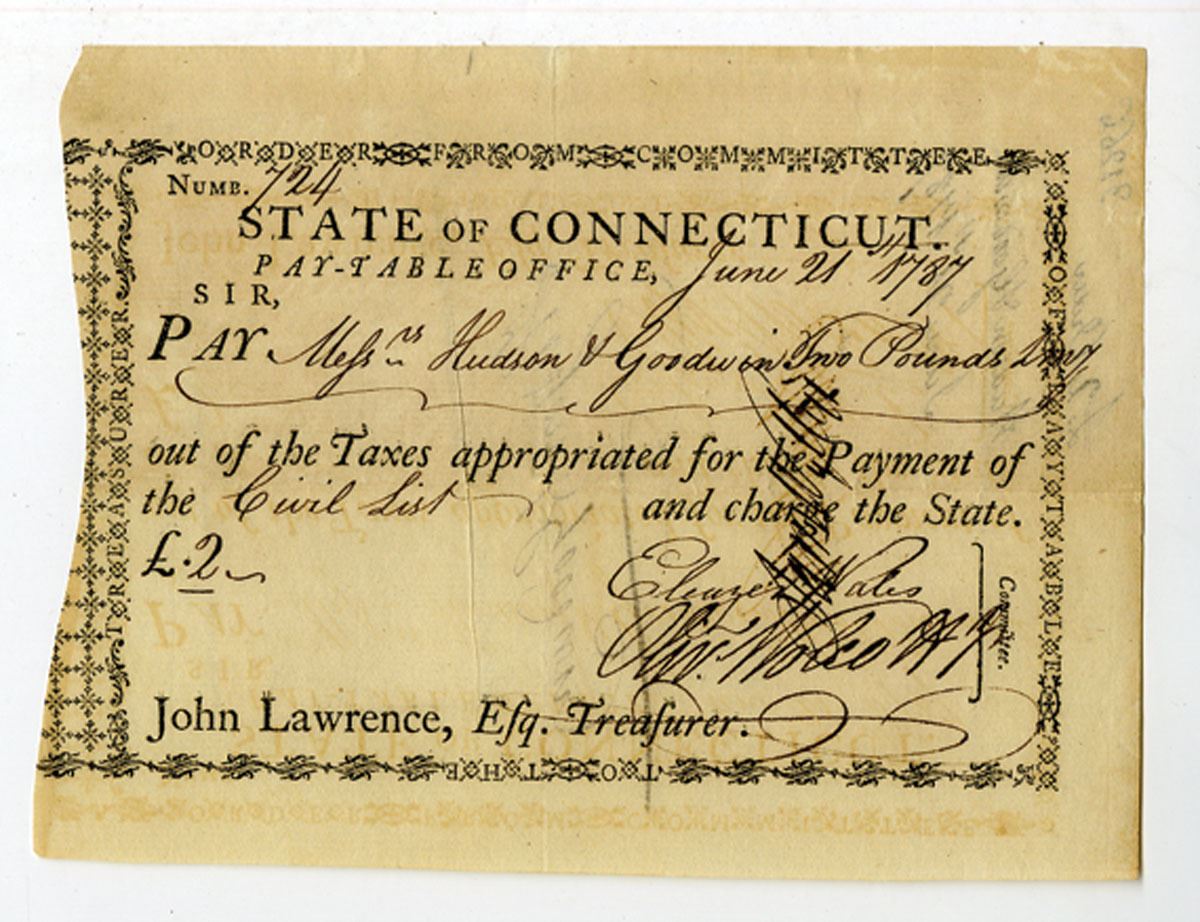 ORDER FROM COMMITTEE
OF PAY TABLE
TO THE
TREASURER.
NUMB. 724
STATE OF CONNECTICUT.
PAY-TABLE OFFICE, June 21st 1787
SIR,
PAY Meſsrs Hudson & Goodwin Two Pounds
out of the Taxes appropriated for the Payment of
the Civil List and charge the State.
£.2
Eleazer Wales
Olivr. Wolcott Jr
Committee.
John Lawrence, Eſq. Treaſurer.